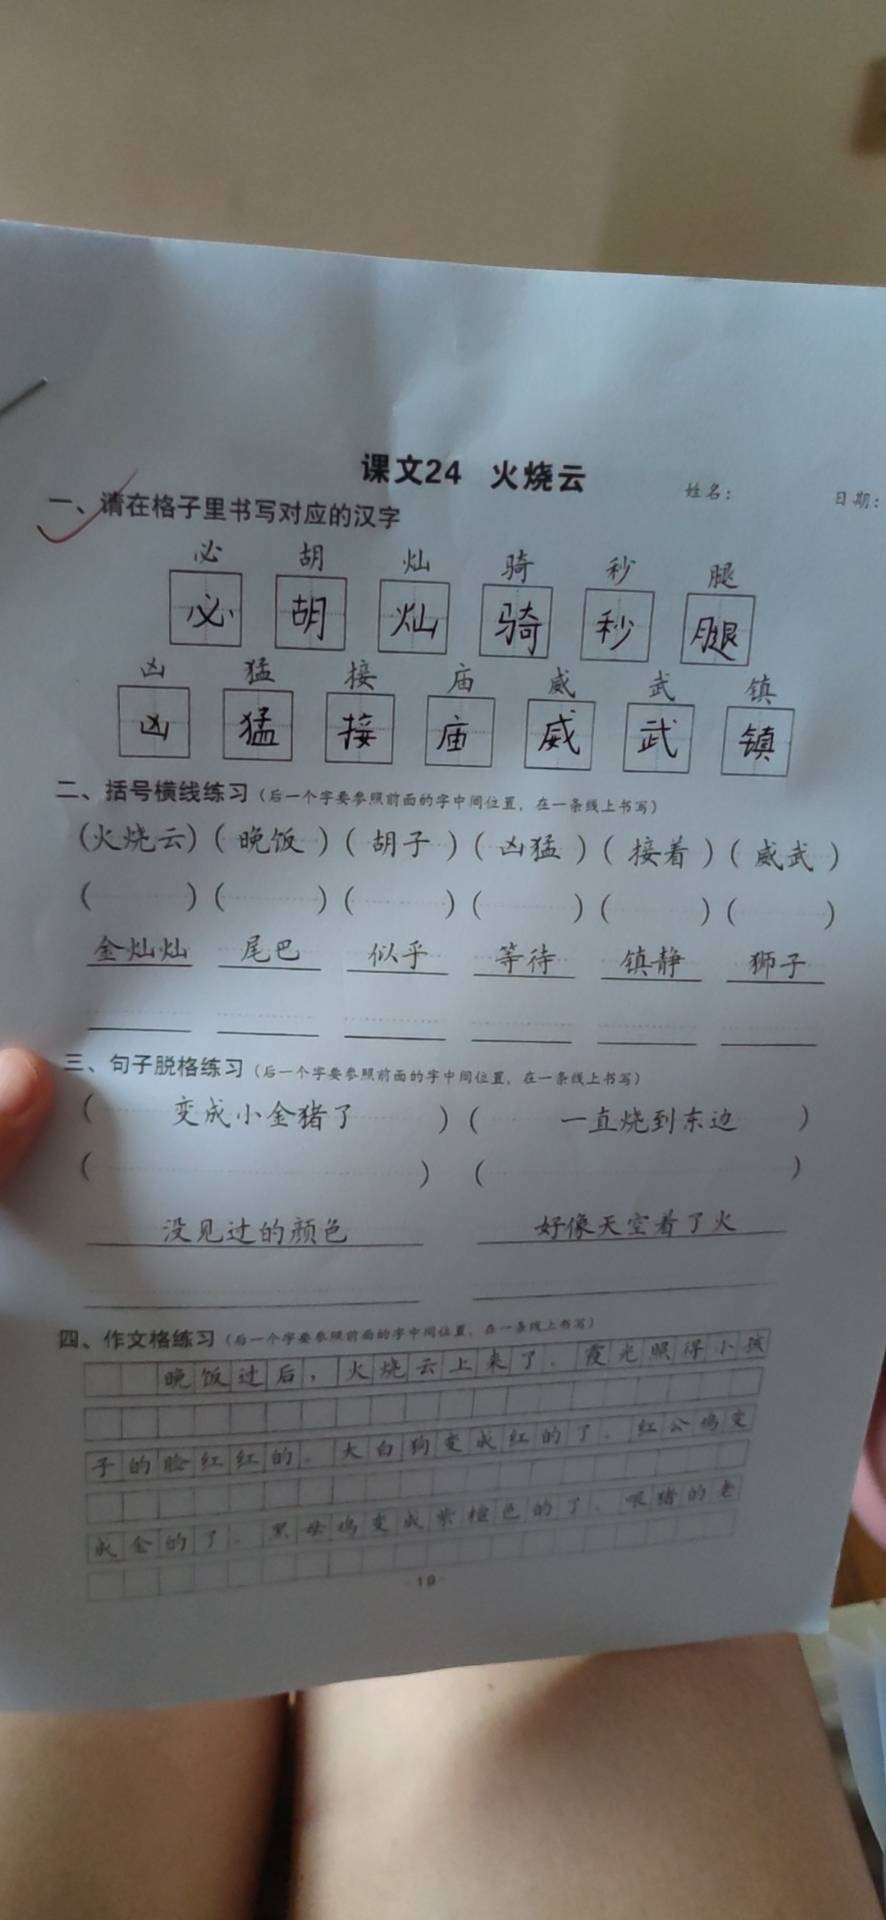 课文24 火烧云
姓名： 日期：
一、请在格子里书写对应的汉字
必 胡 灿 骑 秒 腿
必 胡 灿 骑 秒 腿
凶 猛 接 庙 威 武 镇
凶 猛 接 庙 威 武 镇
二、括号横线练习（后一个字要参照前面的字中间位置，在一条线上书写）
（火烧云）（晚饭）（胡子）（凶猛）（接着）（威武）
（ ）（ ）（ ）（ ）（ ）（ ）
金灿灿 尾巴 似乎 等待 镇静 狮子
三、句子脱格练习（后一个字要参照前面的字中间位置，在一条线上书写）
（变成小金猪了）（一直烧到东边）
（ ）（ ）
没见过的颜色 好像天空着了火
四、作文格练习（后一个字要参照前面的字中间位置，在一条线上书写）
晚饭过后，火烧云上来了。霞光照得小孩
子的脸红红的。大白狗变成红的了。红公鸡变
成金的了。黑母鸡变成紫檀色的了。喂猪的老
19